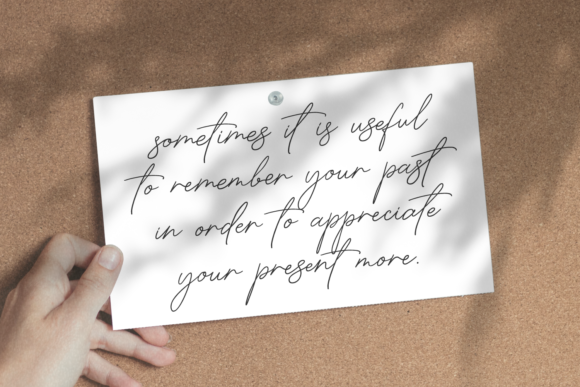 sometimes it is useful
to remember your past
in order to appreciate
your present more.